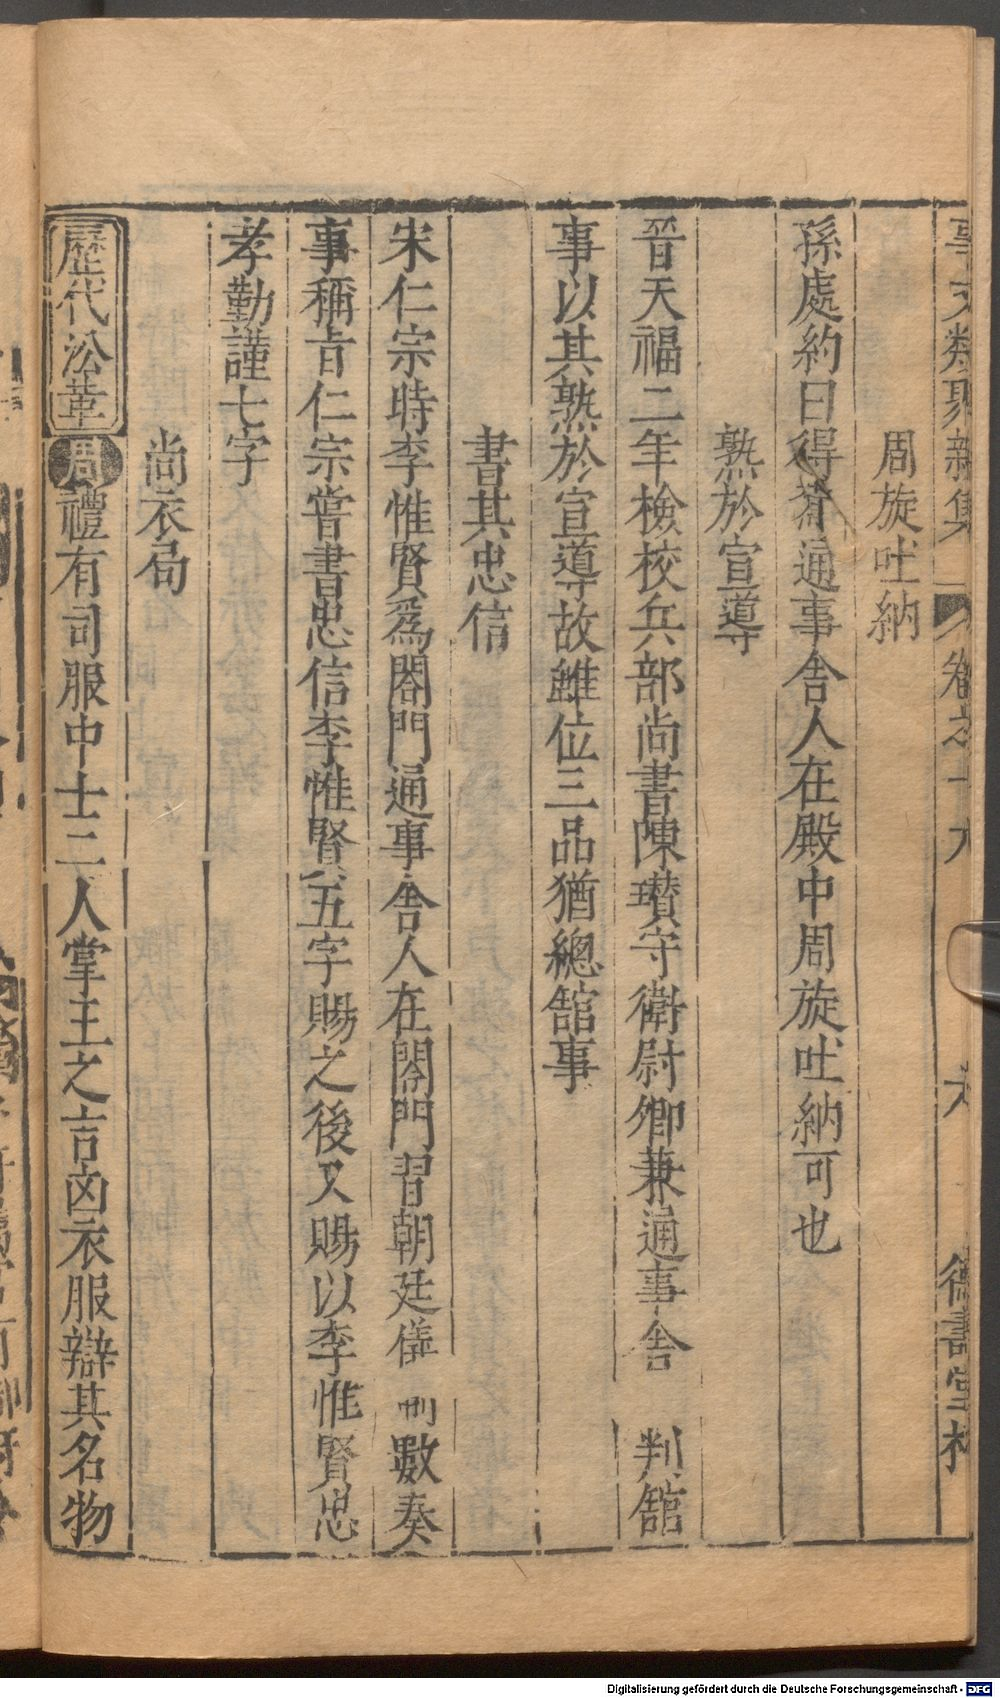 事文類聚新集 卷之十九 六 德壽堂梓
周旋吐納
孫處約曰得爲通事舍人在殿中周旋吐納可也
熟於宣導
晉天福二年檢校兵部尚書陳瓚守衛尉卿兼通事舍 判舘
事以其熟於宣導故雖位三品猶總舘事
書其忠信
宋仁宗時李惟賢爲閤門通事舍人在閤門習朝廷儀 制數奏
事稱旨仁宗嘗書忠信李惟賢五字賜之後又賜以李惟賢忠
孝勤謹七字
尚衣局
歷代沿革 周禮有司服中士二人掌王之吉凶衣服辯其名物
Digitalisierung gefördert durch die Deutsche Forschungsgemeinschaft - DFG